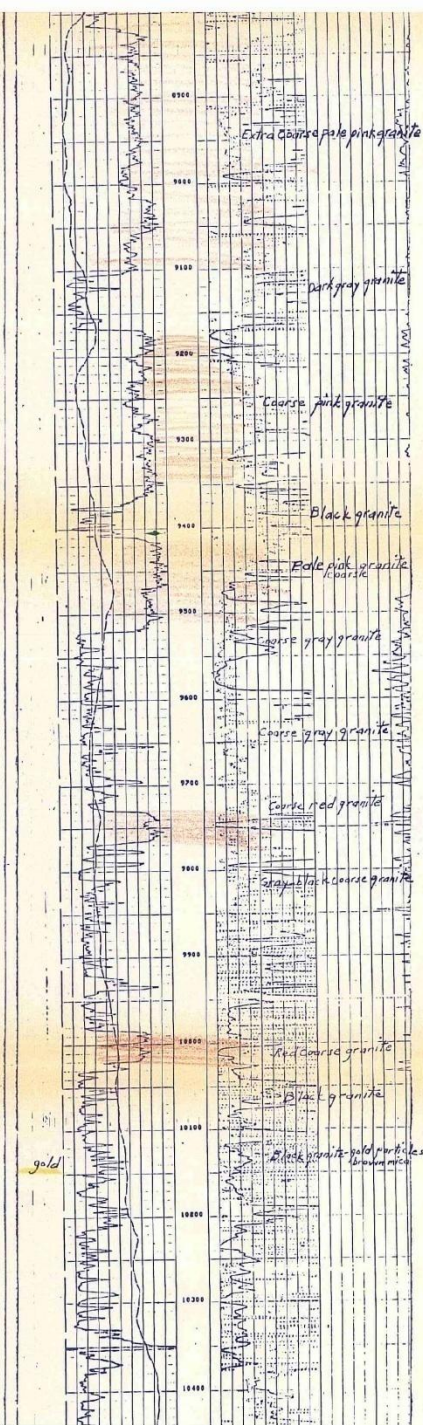 8900
Extra Coarse pale pink granite
9000
9100
Dark gray granite
9200
Coarse pink granite
9300
Black granite
9400
Pale pink granite
coarse
9500
Coarse gray granite
9600
Coarse gray granite
9700
Coarse red granite
9800
Gray-black coarse granite
9900
10000
Red coarse granite
Black granite
10100
Black granite-gold particles
brown mica
gold
10200
10300
10400